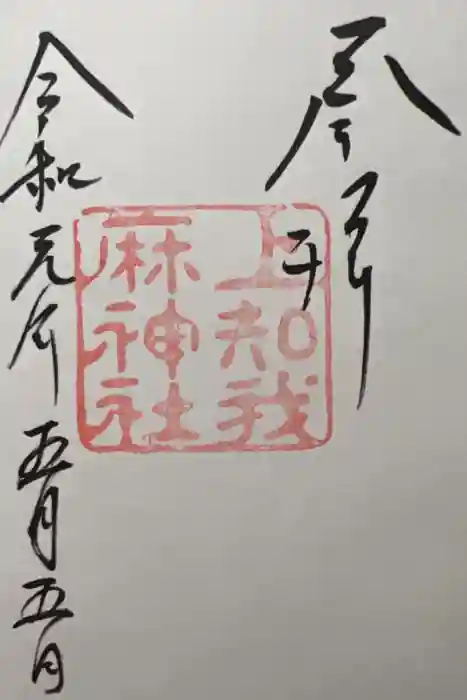 参拝
上知我
麻神社
令和元年五月五日